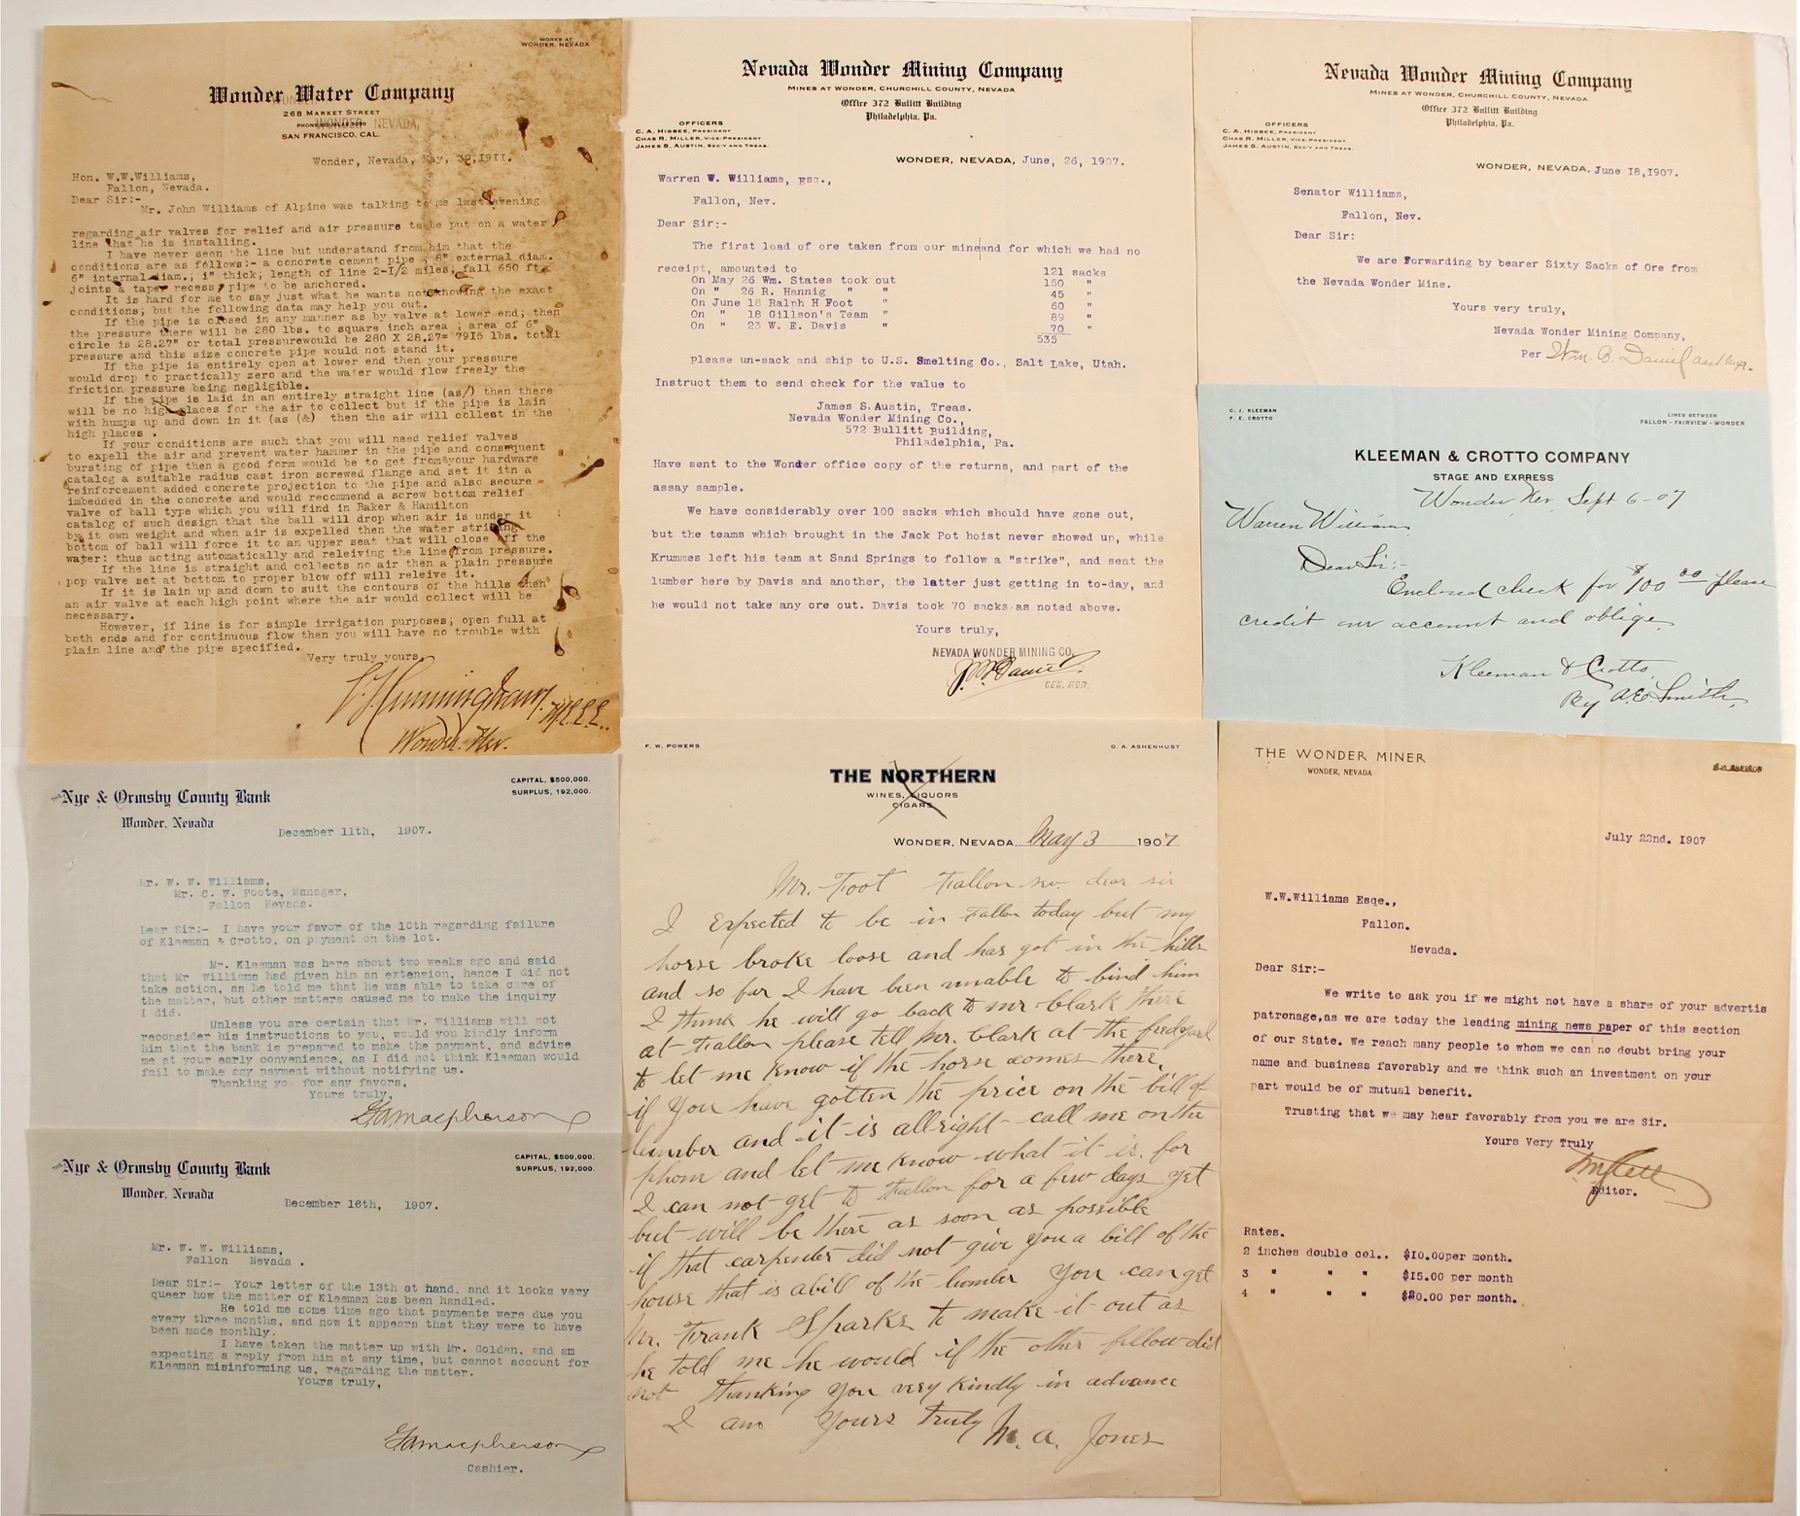 WORKS AT
WONDER, NEVADA
Wonder Water Company
268 MARKET STREET
WONDER, NEVADA,
SAN FRANCISCO, CAL.
Wonder, Nevada, May, 30, 1911.
Hon. W.W.Williams,
Fallon, Nevada.
Dear Sir:-
Mr. John Williams of Alpine was talking to me last evening
regarding air valves for relief and air pressure to be put on a water
line that he is installing.
I have never seen the line but understand from him that the
conditions are as follows:- a concrete cement pipe ; 8" external diam.
6" internal diam.; 1" thick; length of line 2-1/2 miles, fall 650 ft.
joints a taper recess, pipe to be anchored.
It is hard for me to say just what he wants not knowing the exact
conditions; but the following data may help you out.
If the pipe is closed in any manner as by valve at lower end; then
the pressure there will be 280 lbs. to square inch area ; area of 6"
circle is 28.27" or total pressurewould be 280 X 28.27= 7915 lbs. total
pressure and this size concrete pipe would not stand it.
If the pipe is entirely open at lower end then your pressure
would drop to practically zero and the water would flow freely the
friction pressure being negligible.
If the pipe is laid in an entirely straight line (as/) then there
will be no high places for the air to collect but if the pipe is lain
with humps up and down in it (as (&) then the air will collect in the
high places .
If your conditions are such that you will need relief valves
to expell the air and prevent water hammer in the pipe and consequent
bursting of pipe then a good form would be to get from your hardware
catalog a suitable radius cast iron screwed flange and set it itn a
reinforcement added concrete projection to the pipe and also secure
imbedded in the concrete and would recommend a screw bottom relief
valve of ball type which you will find in Baker & Hamilton
catalog of such design that the ball will drop when air is under it
by it own weight and when air is expelled then the water striking
bottom of ball will force it to an upper seat that will close off the
water: thus acting automatically and releiving the line from pressure.
If the line is straight and collects no air then a plain pressure
pop valve set at bottom to proper blow off will releive it.
If it is lain up and down to suit the contours of the hills then
an air valve at each high point where the air would collect will be
necessary.
However, if line is for simple irrigation purposes; open full at
both ends and for continuous flow then you will have no trouble with
plain line and the pipe specified.
Very truly yours,
Cunningham
Wonder Nev.
Nevada Wonder Mining Company
MINES AT WONDER, CHURCHILL COUNTY, NEVADA
Office 372 Bullitt Building
Philadelphia, Pa.
OFFICERS
C. A. HIGBEE, PRESIDENT
CHAS R. MILLER, VICE-PRESIDENT
JAMES S. AUSTIN, SEC'Y AND TREAS.
WONDER, NEVADA, June, 26, 1907.
Warren W. Williams, Esq.,
Fallon, Nev.
Dear Sir:-
The first load of ore taken from our mineand for which we had no
receipt, amounted to 121 sacks
On May 26 Wm. States took out 150 "
On " 26 R. Hannig " " 45 "
On June 18 Ralph H Foot " 60 "
On " 18 Gillson's Team " 89 "
On " 23 W. E. Davis " 70 "
535
Please un-sack and ship to U.S. Smelting Co., Salt Lake, Utah.
Instruct them to send check for the value to
James S. Austin, Treas.
Nevada Wonder Mining Co.,
572 Bullitt Building,
Philadelphia, Pa.
Have sent to the Wonder office copy of the returns, and part of the
assay sample.
We have considerably over 100 sacks which should have gone out,
but the teams which brought in the Jack Pot hoist never showed up, while
Krummes left his team at Sand Springs to follow a "strike", and sent the
lumber here by Davis and another, the latter just getting in to-day, and
he would not take any ore out. Davis took 70 sacks as noted above.
Yours truly,
NEVADA WONDER MINING CO.
Daniel
GEN. MGR.
Nevada Wonder Mining Company
MINES AT WONDER, CHURCHILL COUNTY, NEVADA
Office 372 Bullitt Building
Philadelphia, Pa.
OFFICERS
C. A. HIGBEE, PRESIDENT
CHAS R. MILLER, VICE-PRESIDENT
JAMES S. AUSTIN, SEC'Y AND TREAS.
WONDER, NEVADA, June 18,1907.
Senator Williams,
Fallon, Nev.
Dear Sir:
We are Forwarding by bearer Sixty Sacks of Ore from
the Nevada Wonder Mine.
Yours very truly,
Nevada Wonder Mining Company,
Per Wm. B. Daniel
C. J. KLEEMAN
F. E. CROTTO
LINES BETWEEN
FALLON - FAIRVIEW - WONDER
KLEEMAN & CROTTO COMPANY
STAGE AND EXPRESS
Wonder Nev. Sept 6-07
Warren Williams
Dear Sir:-
Enclosed check for $100 00 please
credit our account and oblige
Kleeman & Crotto,
By A.E. Smith,
THE Nye & Ormsby County Bank
Wonder, Nevada
CAPITAL, $500,000.
SURPLUS, 192,000.
December 11th, 1907.
Mr. W. W. Williams,
Mr. C. W. Foote, Manager,
Fallon Nevada.
Dear Sir:- I have your favor of the 10th regarding failure
of Kleeman & Crotto, on payment on the lot.
Mr. Kleeman was here about two weeks ago and said
that Mr Williams had given him an extension, hence I did not
take action, as he told me that he was able to take care of
the matter, but other matters caused me to make the inquiry
I did.
Unless you are certain that Mr. Williams will not
reconsider his instructions to you, would you kindly inform
him that the bank is prepared to make the payment, and advise
me at your early convenience, as I did not think Kleeman would
fail to make any payment without notifying us.
Thanking you for any favors,
Yours truly,
Macpherson
THE Nye & Ormsby County Bank
Wonder, Nevada
CAPITAL, $500,000.
SURPLUS, 192,000.
December 16th, 1907.
Mr. W. W. Williams,
Fallon Nevada .
Dear Sir:- Your letter of the 13th at hand, and it looks very
queer how the matter of Kleeman has been handled.
He told me some time ago that payments were due you
every three months, and now it appears that they were to have
been made monthly.
I have taken the matter up with Mr. Golden, and am
expecting a reply from him at any time, but cannot account for
Kleeman misinforming us, regarding the matter.
Yours truly,
Macpherson
Cashier.
F. W. POWERS
O. A. ASHENHUST
THE NORTHERN
WINES, LIQUORS
CIGARS
WONDER, NEVADA, May 3 1907
Mr. Foot Fallon nev. dear sir
I Expected to be in Fallon today but my
horse broke loose and has got in the hills
and so far I have been unable to bind him
I think he will go back to mr clark there
at Fallon please tell mr. clark at the feedyard
to let me know if the horse comes there,
if you have gotten the price on the bill of
lumber and it is allright call me on the
phom and let me know what it is. for
I can not get to Fallon for a few days yet
but will be there as soon as possible
if that carpenter did not give you a bill of the
house that is abill of the lumber you can get
Mr. Frank Sparks to make it out as
he told me he would if the other fellow did
not Thanking you very kindly in advance
I am Yours truly M. A. Jones
THE WONDER MINER
WONDER, NEVADA
July 22nd. 1907
W.W.Williams Esqe.,
Fallon.
Nevada.
Dear Sir:-
We write to ask you if we might not have a share of your advertis
patronage,as we are today the leading mining news paper of this section
of our State. We reach many people to whom we can no doubt bring your
name and business favorably and we think such an investment on your
part would be of mutual benefit.
Trusting that we may hear favorably from you we are Sir.
Yours Very Truly
Editor.
Rates.
2 inches double col.. $10.00per month.
3 " " " $15.00 per month
4 " " " $20.00 per month.